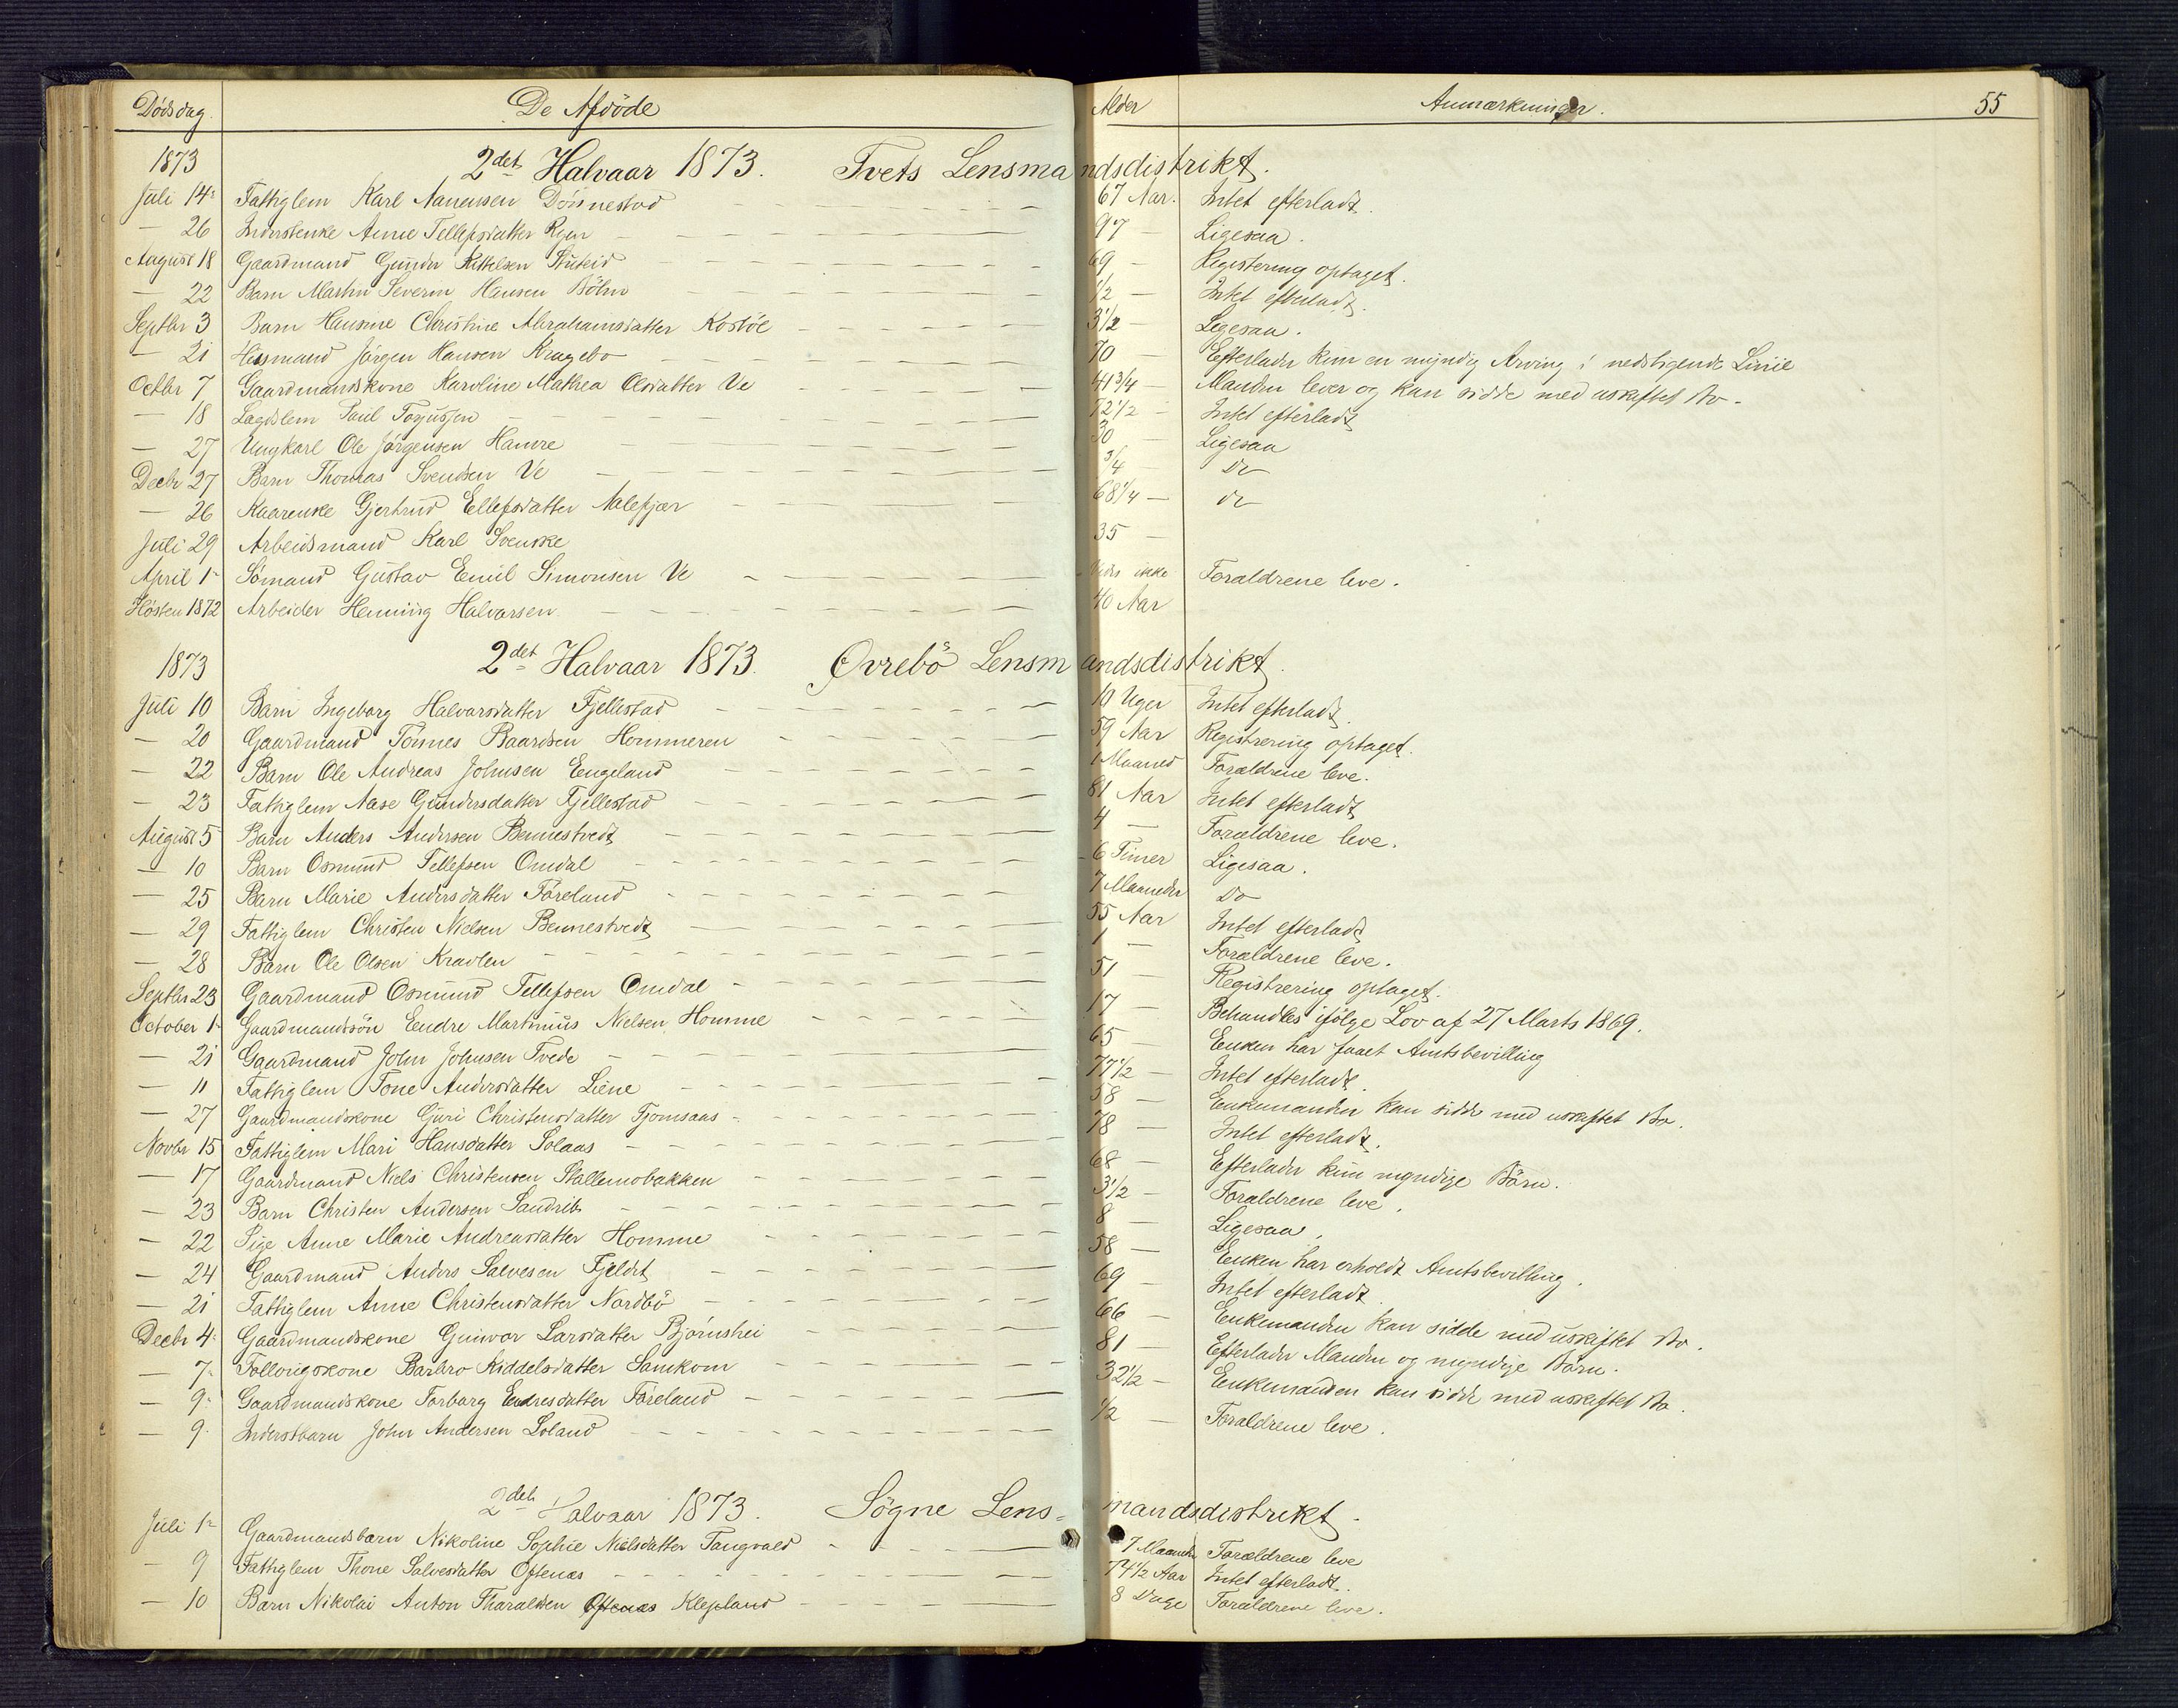 Dödsdag. De Afdöde Alder Anmærkninger. 55
1873 2det Halvaar 1873. Tvets Lensmandsdistrikt.
Juli 14 Fattiglem Karl Aanensen Dönnestad 67 Aar. Intet efterladt.
— 26 Inderstenke Anne Tellefsdatter Ryen 97 — Ligesaa.
August 18 Gaardmand Gunder Kittelsen Stuteid 69 — Registering optaget.
— 22 Barn Martin Severin Hansen Bölm 1/2 — Intet efterladt.
Septbr 3 Barn Hansine Christine Abrahamsdatter Kostöl 3 1/2 — Ligesaa.
— 21 Huusmand Jörgen Hansen Kragebo 70 Efterlader kun en myndig Arving i nedstigende Linie
Octbr 7 Gaardmandskone Karoline Mathea Olsdatter Ve 41 3/4 — Manden lever og kan sidde med uskiftet Bo.
— 18 Lægdslem Paul Togussen 72 1/2 — Intet efterladt
— 27 Ungkarl Ole Jörgensen Hamre 30 — Ligesaa
Decbr 27 Barn Thomas Svendsen Ve 3/4 Do
— 26 Kaarenke Gjertrud Ellefsdatter Aalefjær 68 1/4 — Do
Juli 29 Arbeidsmand Karl Svenske 35 —
April 1 Sömand Gustav Emil Simonsen Ve Vides ikke Forældrene leve.
Hösten 1872 Arbeider Henning Halvorsen 40 Aar
1873 2det Halvaar 1873. Øvrebö Lensmandsdistrikt.
Juli 10 Barn Ingeborg Halvorsdatter Fjellestad 10 Uger Intet efterladt.
— 20 Gaardmand Tönnes Baardsen Hommeren 59 Aar Registrering optaget.
— 22 Barn Ole Andreas Johnsen Engeland 1 Maaned Forældrene leve.
— 23 Fattiglem Aase Gundersdatter Fjellestad 81 Aar Intet efterladt
August 5 Barn Anders Andersen Bennestvedt 4 — Forældrene leve.
— 10 Barn Osmund Tellefsen Omdal 6 Timer Ligesaa.
— 25 Barn Marie Andersdatter Föreland 7 Maaneder Do
— 29 Fattiglem Christen Nielsen Bennestvedt 55 Aar Intet efterladt
— 28 Barn Ole Olsen Kravlen 1 — Forældrene leve.
Septbr 23 Gaardmand Osmund Tellefsen Omdal 51 — Registrering optaget.
October 1 Gaardmandssön Endre Martinius Nielsen Homme 17 — Behandles ifölge Lov af 27 Marts 1869.
— 21 Gaardmand John Johnsen Tvede 65 — Enken har faaet Amtsbevilling
— 11 Fattiglem Tone Andersdatter Liene 77 1/2 — Intet efterladt.
— 27 Gaardmandskone Guri Christensdatter Fjomsaas 58 — Enkemanden kan sidde med uskiftet Bo.
Novbr 15 Fattiglem Mari Hansdatter Solaas 78 — Intet efterladt.
— 17 Gaardmand Niels Christensen Stallemobakken 68 — Efterlader kun myndige Börn.
— 23 Barn Christen Andersen Sandrib 3 1/2 — Forældrene leve.
— 22 Pige Anne Marie Andreasdatter Homme 8 — Ligesaa,
— 24 Gaardmand Anders Salvesen Fjeldet 58 — Enken har erholdt Amtsbevilling.
— 21 Fattiglem Anne Christensdatter Nordbö 69 — Intet efterladt.
Decbr 4 Gaardmandskone Gunvor Larsdatter Björnshei 66 — Enkemanden kan sidde med uskiftet Bo.
— 7 Follorigskone Barbro Kiddelsdatter Samkom 81 — Efterlader Manden og myndige Börn.
— 9 Gaardmandskone Torborg Endresdatter Föreland 32 1/2 — Enkemanden kan sidde med uskiftet Bo.
— 9 Inderstbarn John Andersen Loland 1/2 — Forældrene leve.
2det Halvaar 1873. Sögne Lens=mandsdistrikt.
Juli 1 Gaardmandsbarn Nikoline Sophie Nielsdatter Tangvald 7 Maaneder Forældrene leve
— 9 Fattiglem Thone Salvesdatter Oftenæs 74 1/2 Aar Intet efterladt.
— 10 Barn Nikolai Anton Tharaldsen Oftenæs Klepland 8 Dage Forældrene leve.